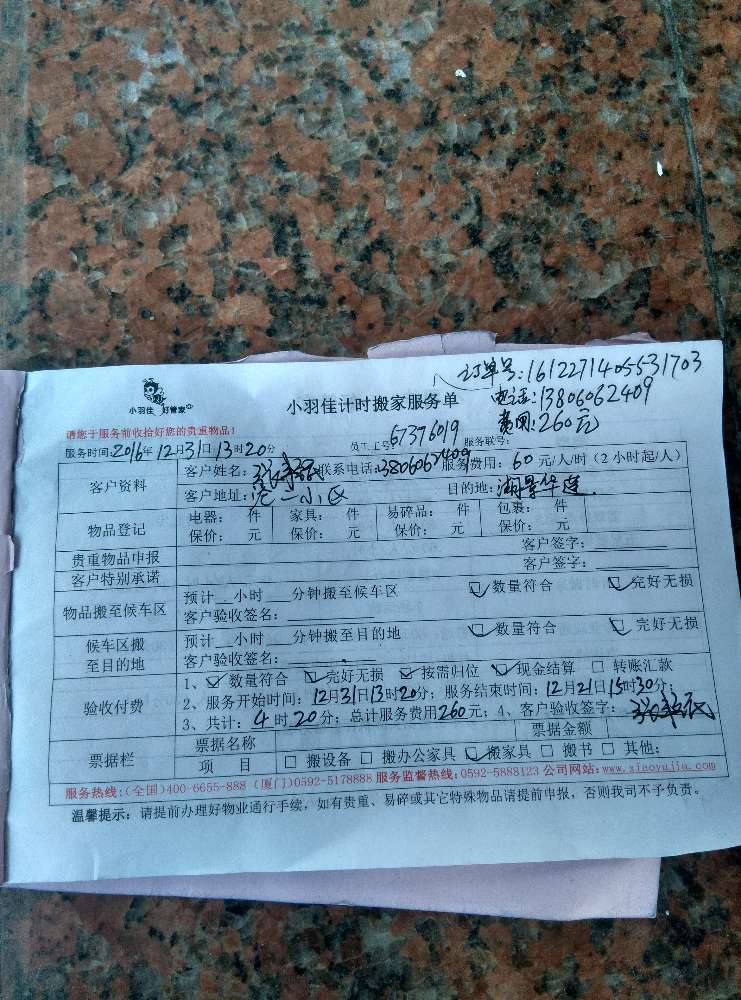 订单号:1612271405531703
小羽佳 好管家
小羽佳计时搬家服务单
电话:13806062409
费用:260元
请您于服务前收拾好您的贵重物品!
服务时间:2016年12月31日13时20分 员工工号67376019 服务联号:
客户资料
客户姓名: 联系电话:13806062409 服务费用:60元/人/时(2小时起/人)
客户地址: 二小区 目的地:湖景华庭
物品登记
电器: 件 家具: 件 易碎品: 件 包裹: 件
保价: 元 保价: 元 保价: 元 保价: 元
贵重物品申报 客户签字:
客户特别承诺 客户签字:
物品搬至候车区
预计 小时 分钟搬至候车区 数量符合 完好无损
客户验收签名:
候车区搬至目的地
预计 小时 分钟搬至目的地 数量符合 完好无损
客户验收签名:
验收付费
1、数量符合 完好无损 按需归位 现金结算 转账汇款
2、服务开始时间:12月31日13时20分;服务结束时间:12月21日15时30分;
3、共计:4时20分;总计服务费用260元;4、客户验收签字:
票据栏
票据名称 票据金额
项 目 搬设备 搬办公家具 搬家具 搬书 其他:
服务热线:(全国)400-6655-888 (厦门)0592-5178888 服务监督热线:0592-5888123 公司网站:www.xiaoyujia.com
温馨提示:请提前办理好物业通行手续,如有贵重、易碎或其它特殊物品请提前申报,否则我司不予负责。